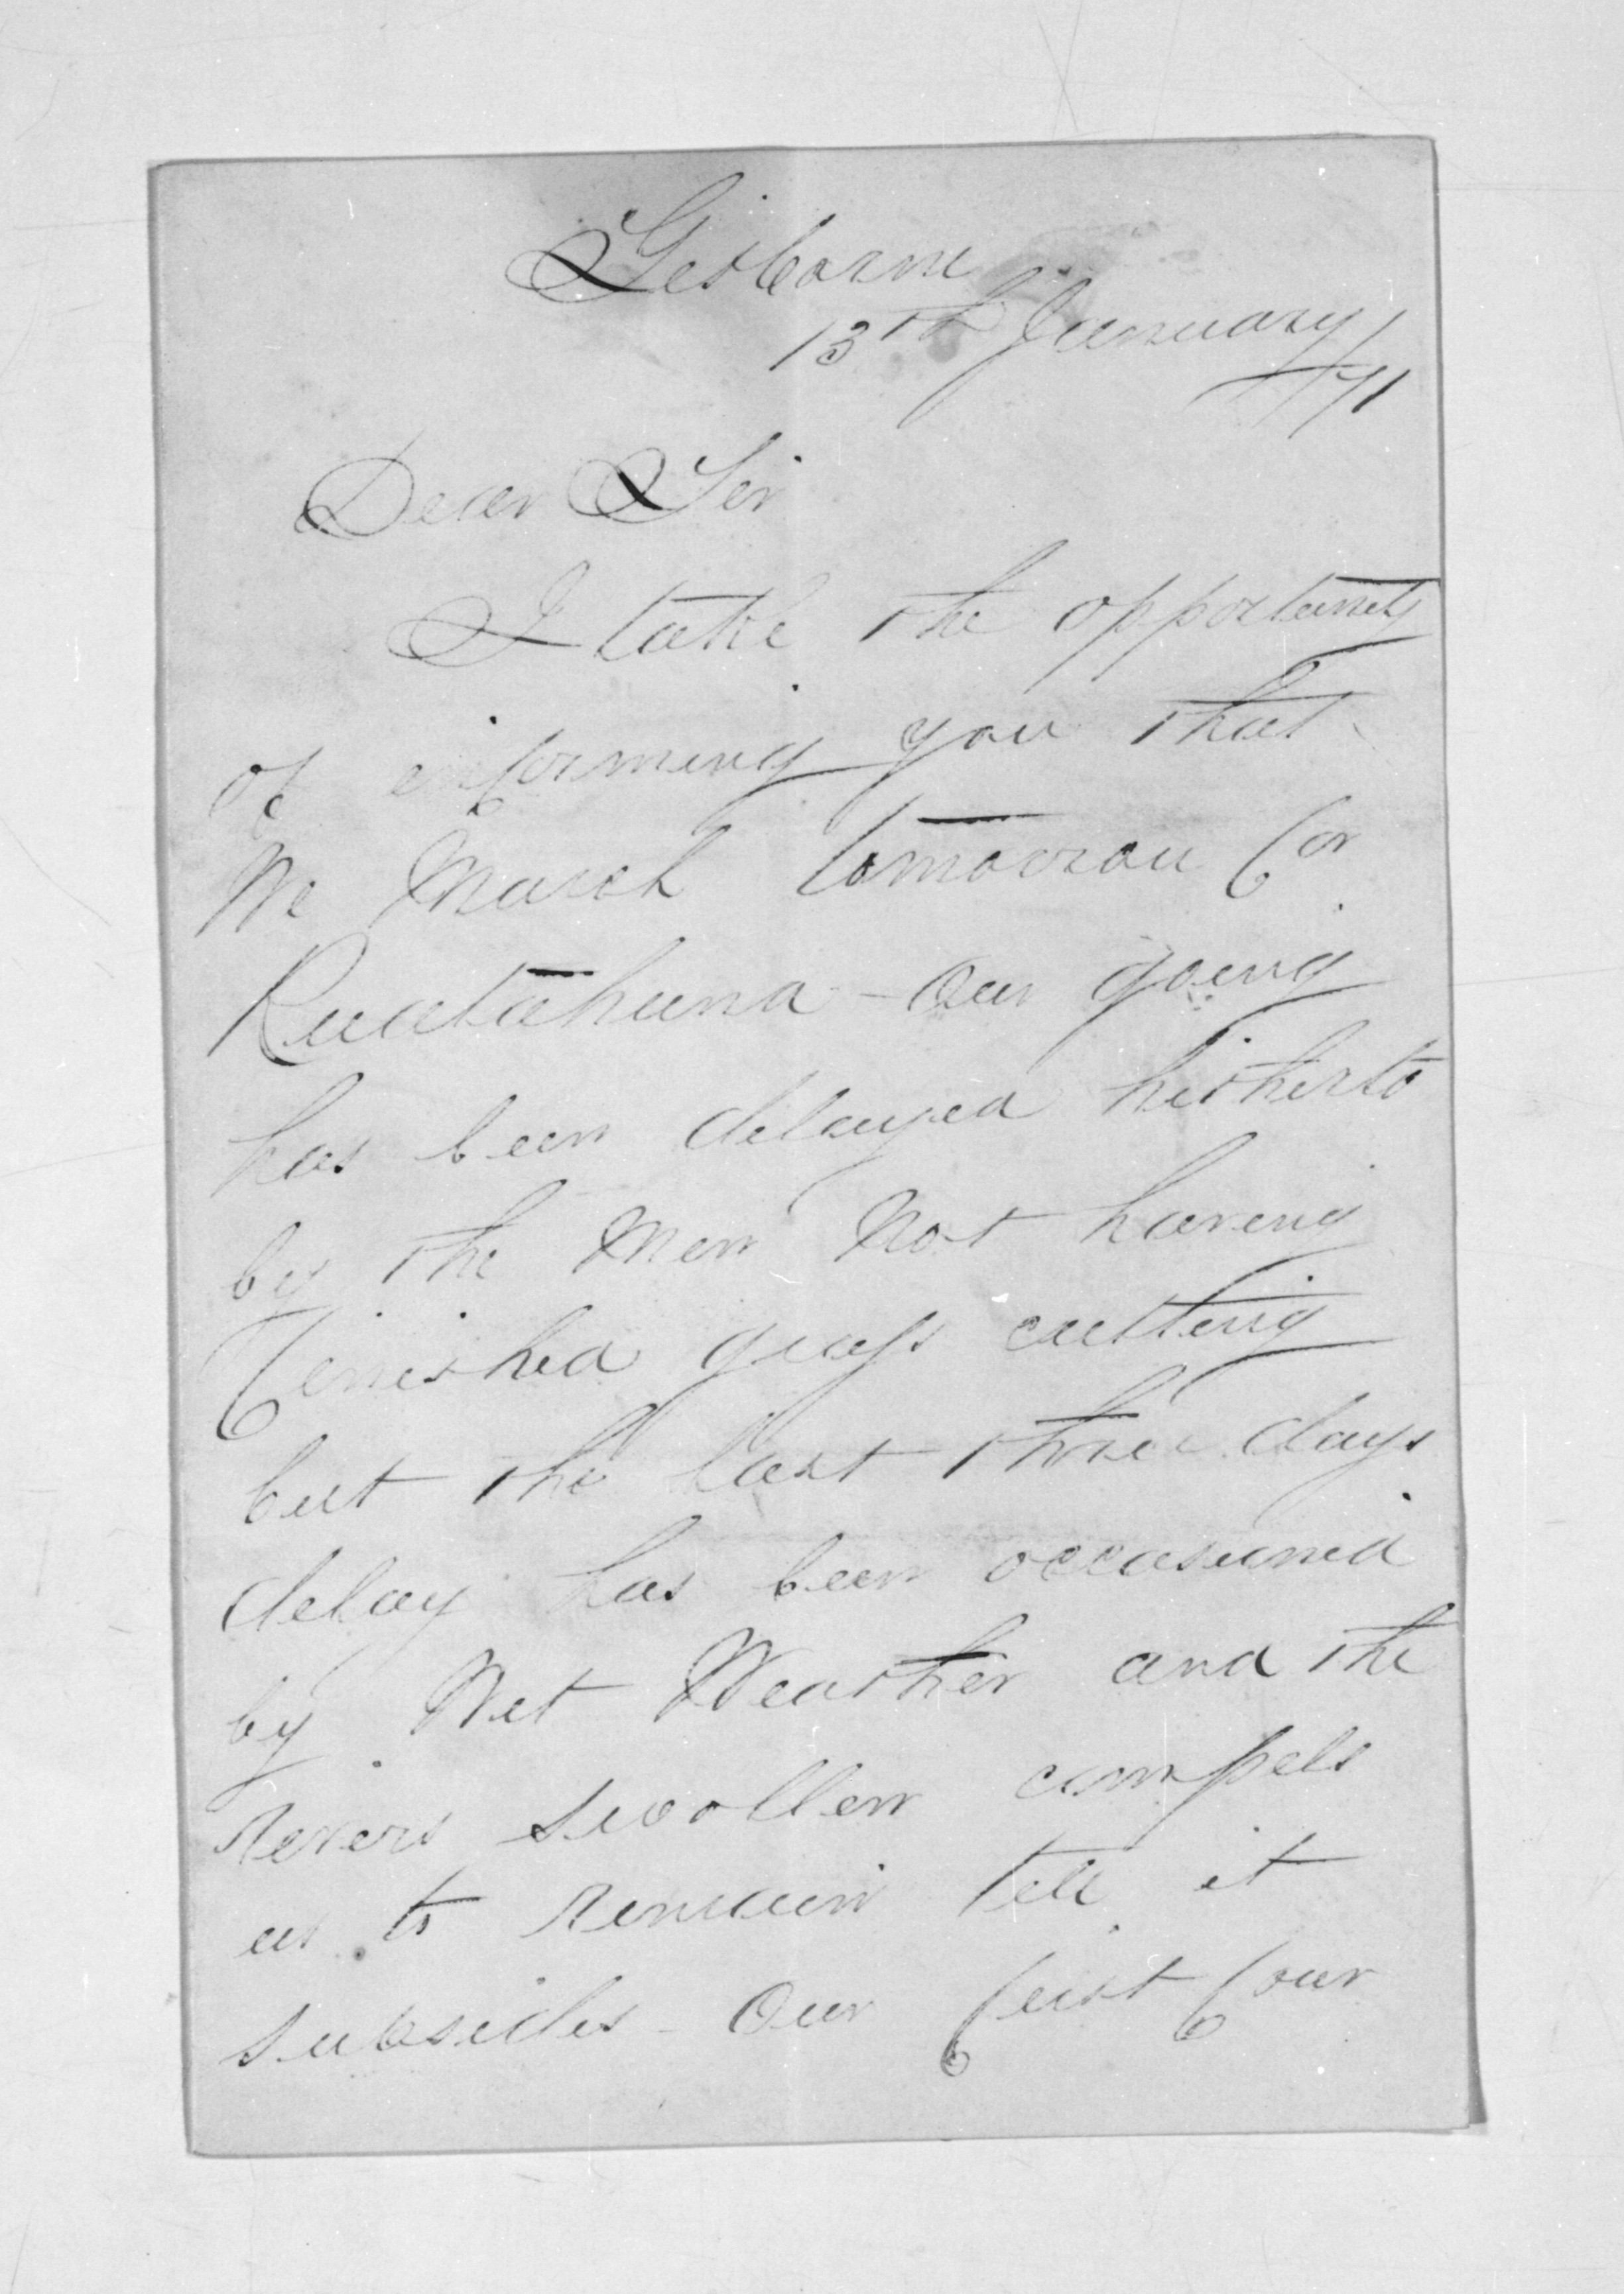 Gisborne
13th January
/71
Dear Sir
I take the opportunity
of informing you that
We March tomorrow for
Ruatahuna - Our going
has been delayed hitherto
by the Men Not having
finished grass cutting
but the last three days
delay has been occasioned
by Wet Weather and the
rivers swollen compels
us to remain till it
subsides - Our first four